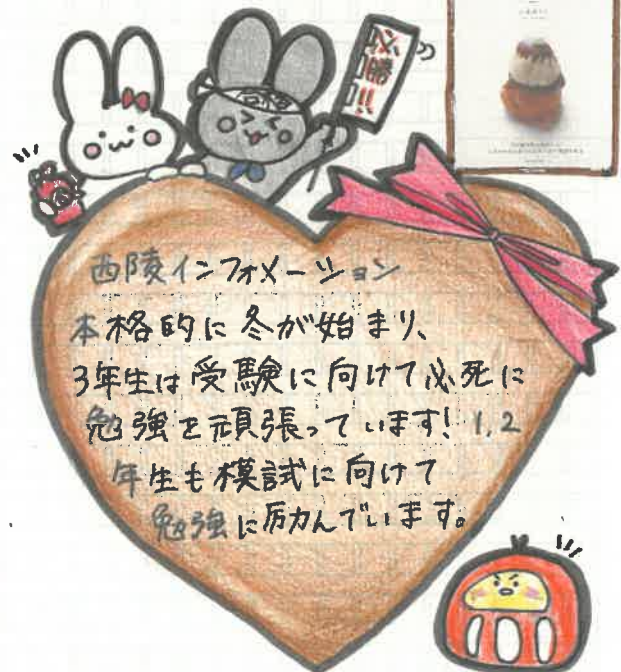 必勝!!
合格
西陵インフォメーション
本格的に冬が始まり、
3年生は受験に向けて必死に
勉強を頑張っています! 1,2
年生も模試に向けて
勉強に励んでいます。